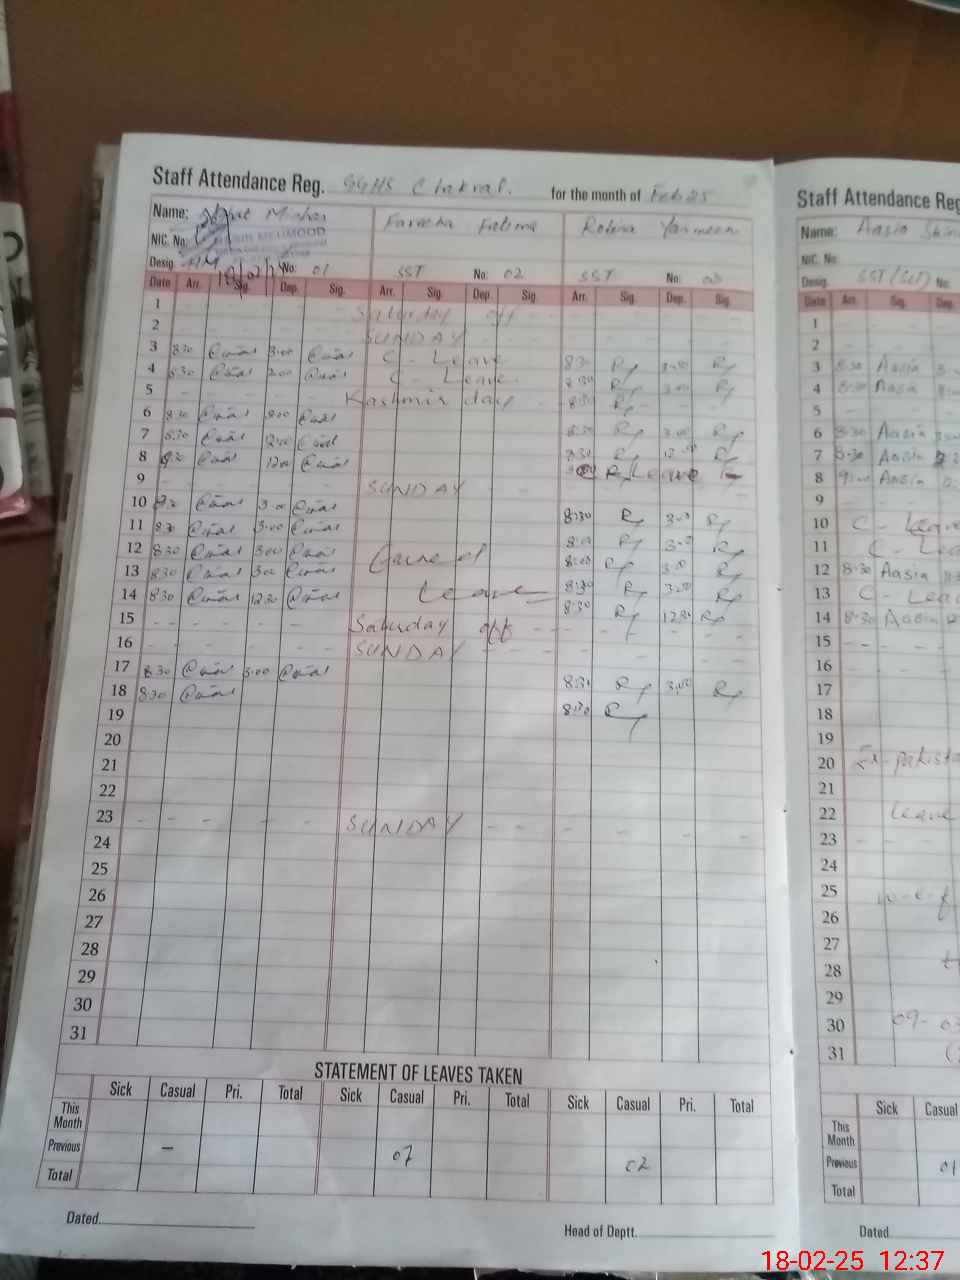 Staff Attendance Reg. GGHS Chakral. for the month of Feb 25
Name: Fareeha Fatima Robina Yasmeen
NIC. No.
MEHMOOD
Desig. HM No: 01 SST No: 02 SST No: 03
Date Arr. Sig. Dep. Sig. Arr. Sig. Dep. Sig. Arr. Sig. Dep. Sig.
1 - - - - Saturday off - - - -
2 - - - - SUNDAY - - - -
3 8:30 3:00 C - Leave 8:30 Ry 3:00 Ry
4 8:30 3:00 C - Leave 8:30 Ry 3:00 Ry
5 - - - - Kashmir day - 8:30 Ry -
6 8:30 3:00 8:30 Ry 3:00 Ry
7 8:30 12:30 8:30 Ry 12:30 Ry
8 9:00 12:00 Ry Leave
9 - - - - SUNDAY - - - -
10 8:30 3:00 8:30 Ry 3:00 Ry
11 8:30 3:00 8:30 Ry 3:00 Ry
12 8:30 3:00 8:30 Ry 3:00 Ry
13 8:30 3:00 Leave 8:30 Ry 3:00 Ry
14 8:30 12:30 8:30 Ry 12:30 Ry
15 - - - - Saturday off - - - - -
16 - - - - SUNDAY - - - - - -
17 8:30 3:00 8:30 Ry 3:00 Ry
18 8:30 8:30 Ry
19
20
21
22
23 - - - - SUNDAY - - - - - -
24
25
26
27
28
29
30
31
STATEMENT OF LEAVES TAKEN
Sick Casual Pri. Total Sick Casual Pri. Total Sick Casual Pri. Total
This Month
Previous - 07 02
Total
Dated. Head of Deptt.
Staff Attendance Reg
Name: Aasia
NIC. No.
Desig. SST (Sci) No
Date Arr. Sig. Dep.
1
2
3 8:30 Aasia
4 8:30 Aasia
5
6 8:30 Aasia
7 8:30 Aasia
8 9:00 Aasia
9
10 C - Leave
11 C - Lea
12 8:30 Aasia
13 C - Lea
14 8:30 Aasia
15
16
17
18
19
20 Ex-pakista
21
22 Leave
23
24
25 w-e-f
26
27
28
29
30 09-03
31
Sick Casual
This Month
Previous 01
Total
Dated
18-02-25 12:37